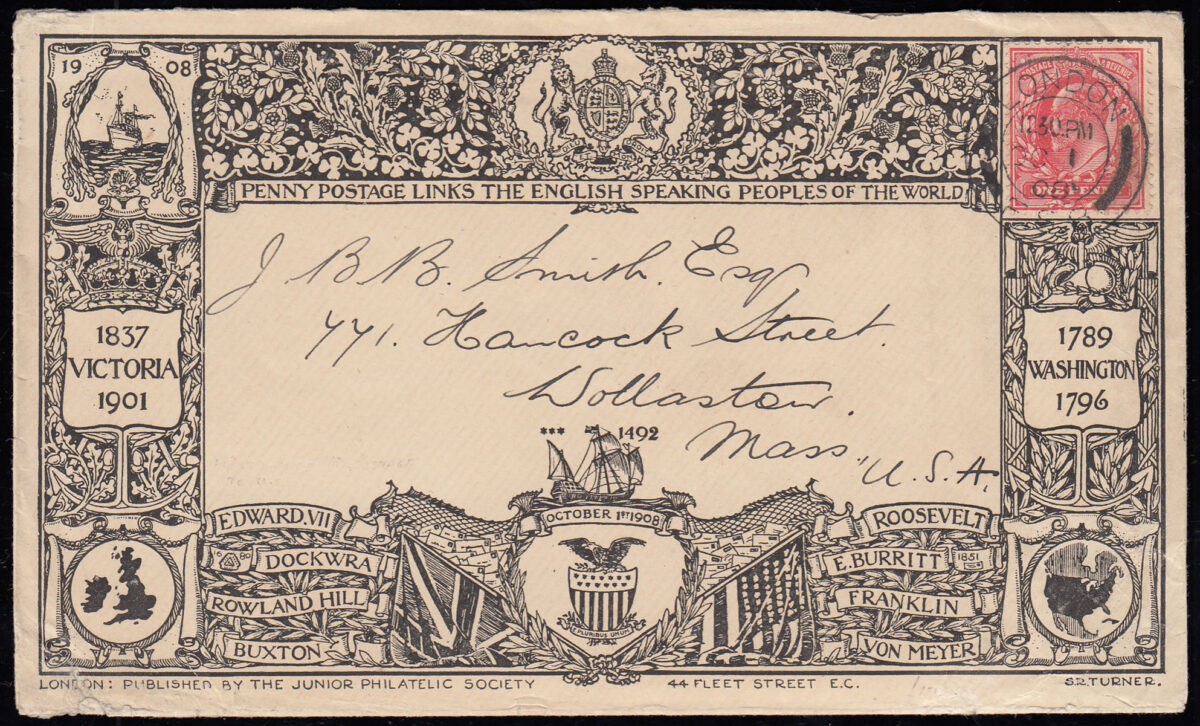 1908
POSTAGE & REVENUE
LONDON
12.30.PM
1
ONE PENNY
PENNY POSTAGE LINKS THE ENGLISH SPEAKING PEOPLES OF THE WORLD
J. B. B. Smith. Esq
771. Hancock Street.
Wollaston.
Mass,
U. S. A.
1837
VICTORIA
1901
1789
WASHINGTON
1796
*** 1492
OCTOBER 1ST 1908
E PLURIBUS UNUM
EDWARD.VII
DOCKWRA
ROWLAND HILL
BUXTON
ROOSEVELT
E. BURRITT 1851
FRANKLIN
VON MEYER
LONDON: PUBLISHED BY THE JUNIOR PHILATELIC SOCIETY 44 FLEET STREET E.C. S.R.TURNER.